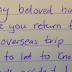 my beloved hu
e you return f
overseas trip
to let to know